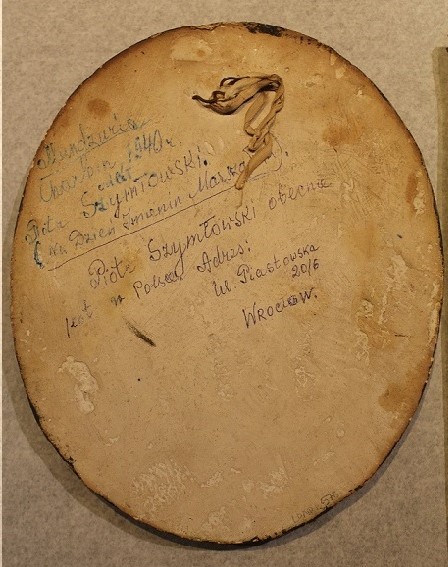 Mandżuria
Charbin 1940 r.
Piotr Szymłowski.
(Na Dzień Imienin Marka).
Piotr Szymłowski obecnie
jest w Polsce Adres:
Ul. Piastowska
20/6
Wrocław.